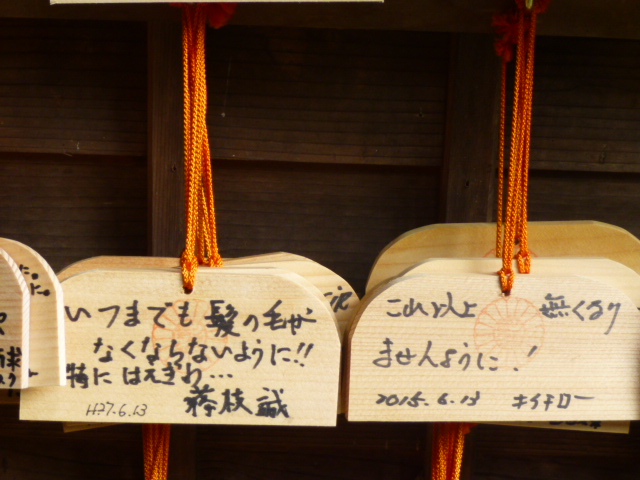 いつまでも髪の毛が
なくならないように!!
特にはえぎわ...
H27.6.13 藤枝誠
これいじょう 無くなり
ませんように!
2015.6.13 キイチロー